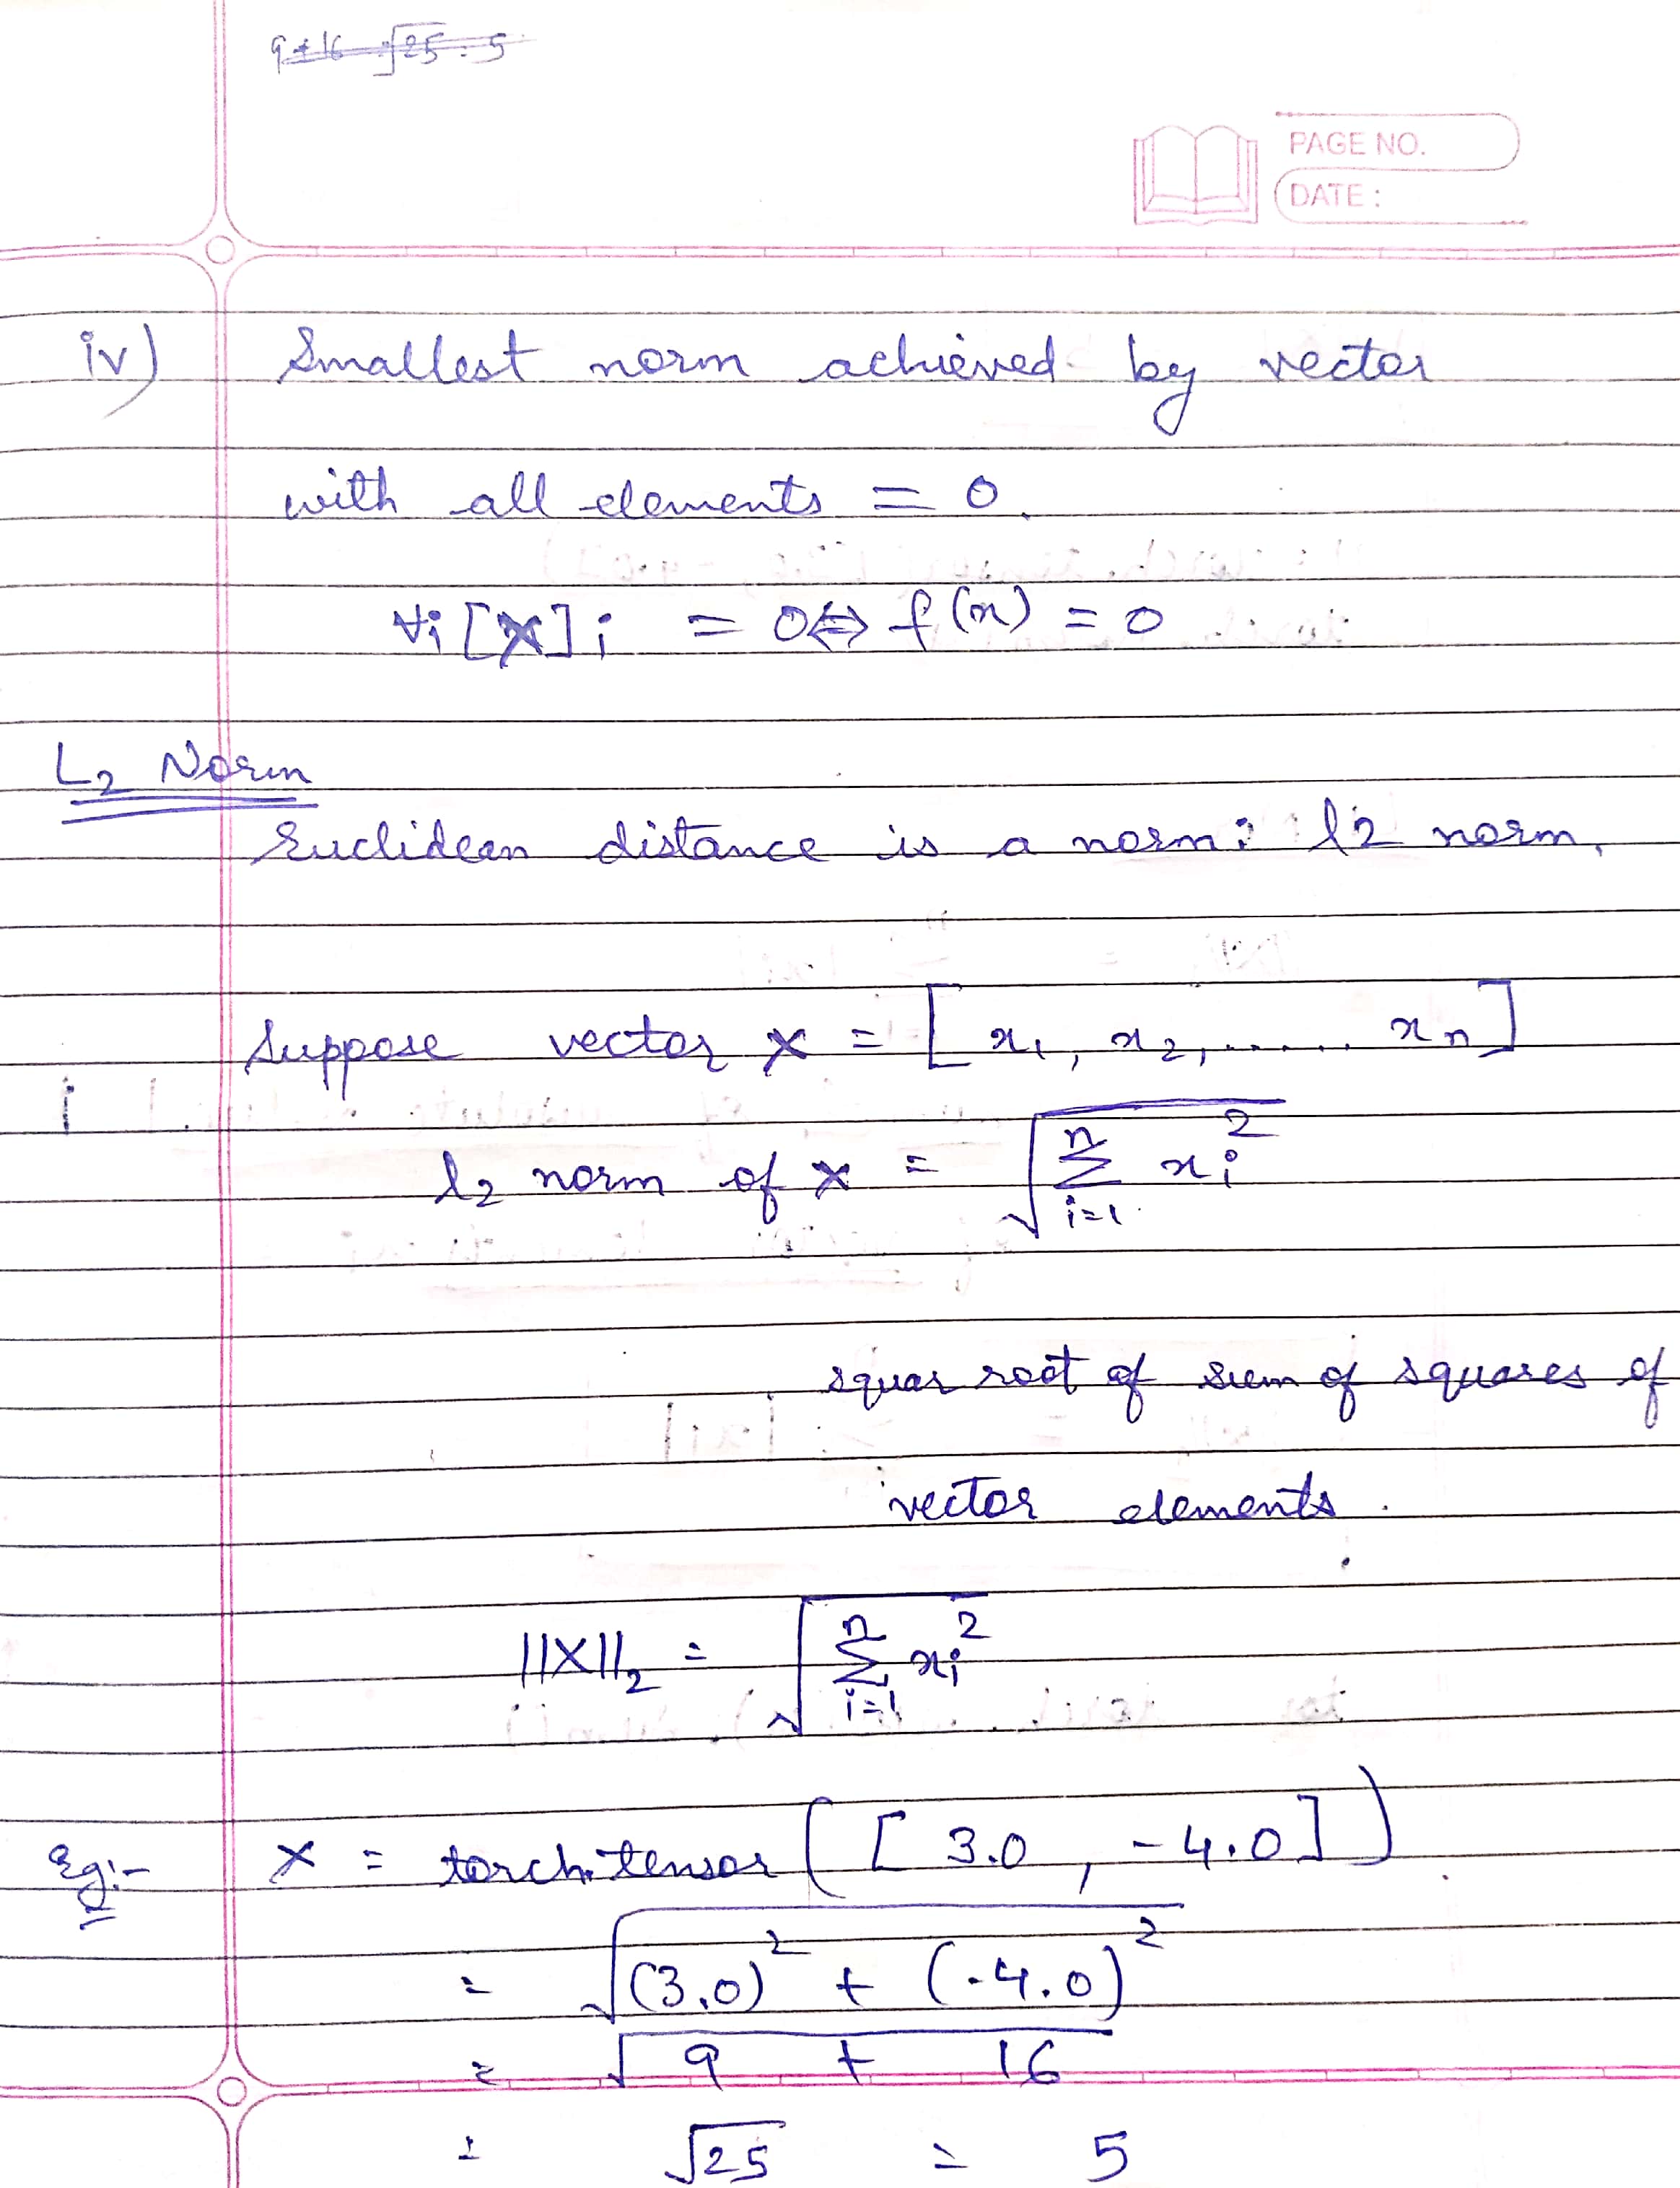 9+16 =√25 = 5
PAGE NO.
DATE:
iv) Smallest norm achieved by vector
with all elements = 0.
∀i [X]i = 0 ⇔ f(x) = 0
L2 Norm
Euclidean distance is a norm: l2 norm.
Suppose vector x = [x1, x2, ...... xn]
l2 norm of x = √ n Σ i=1 xi²
squar root of sum of squares of
vector elements.
||X||2 = √ n Σ i=1 xi²
Eg:- X = torch.tensor([3.0, -4.0])
= √(3.0)² + (-4.0)²
= √9 + 16
= √25 = 5